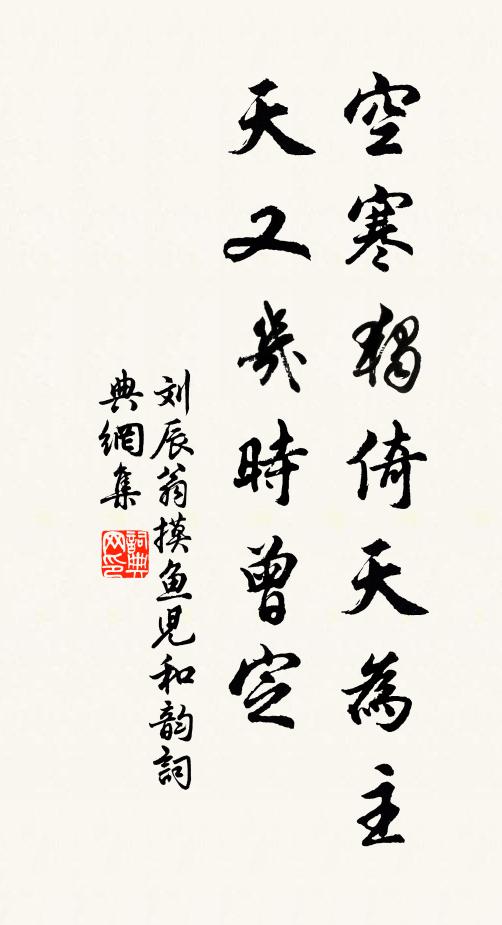 空寒獨倚天為主
天又幾時曾定
刘辰翁摸鱼児和韵詞
典網集
詞典网印